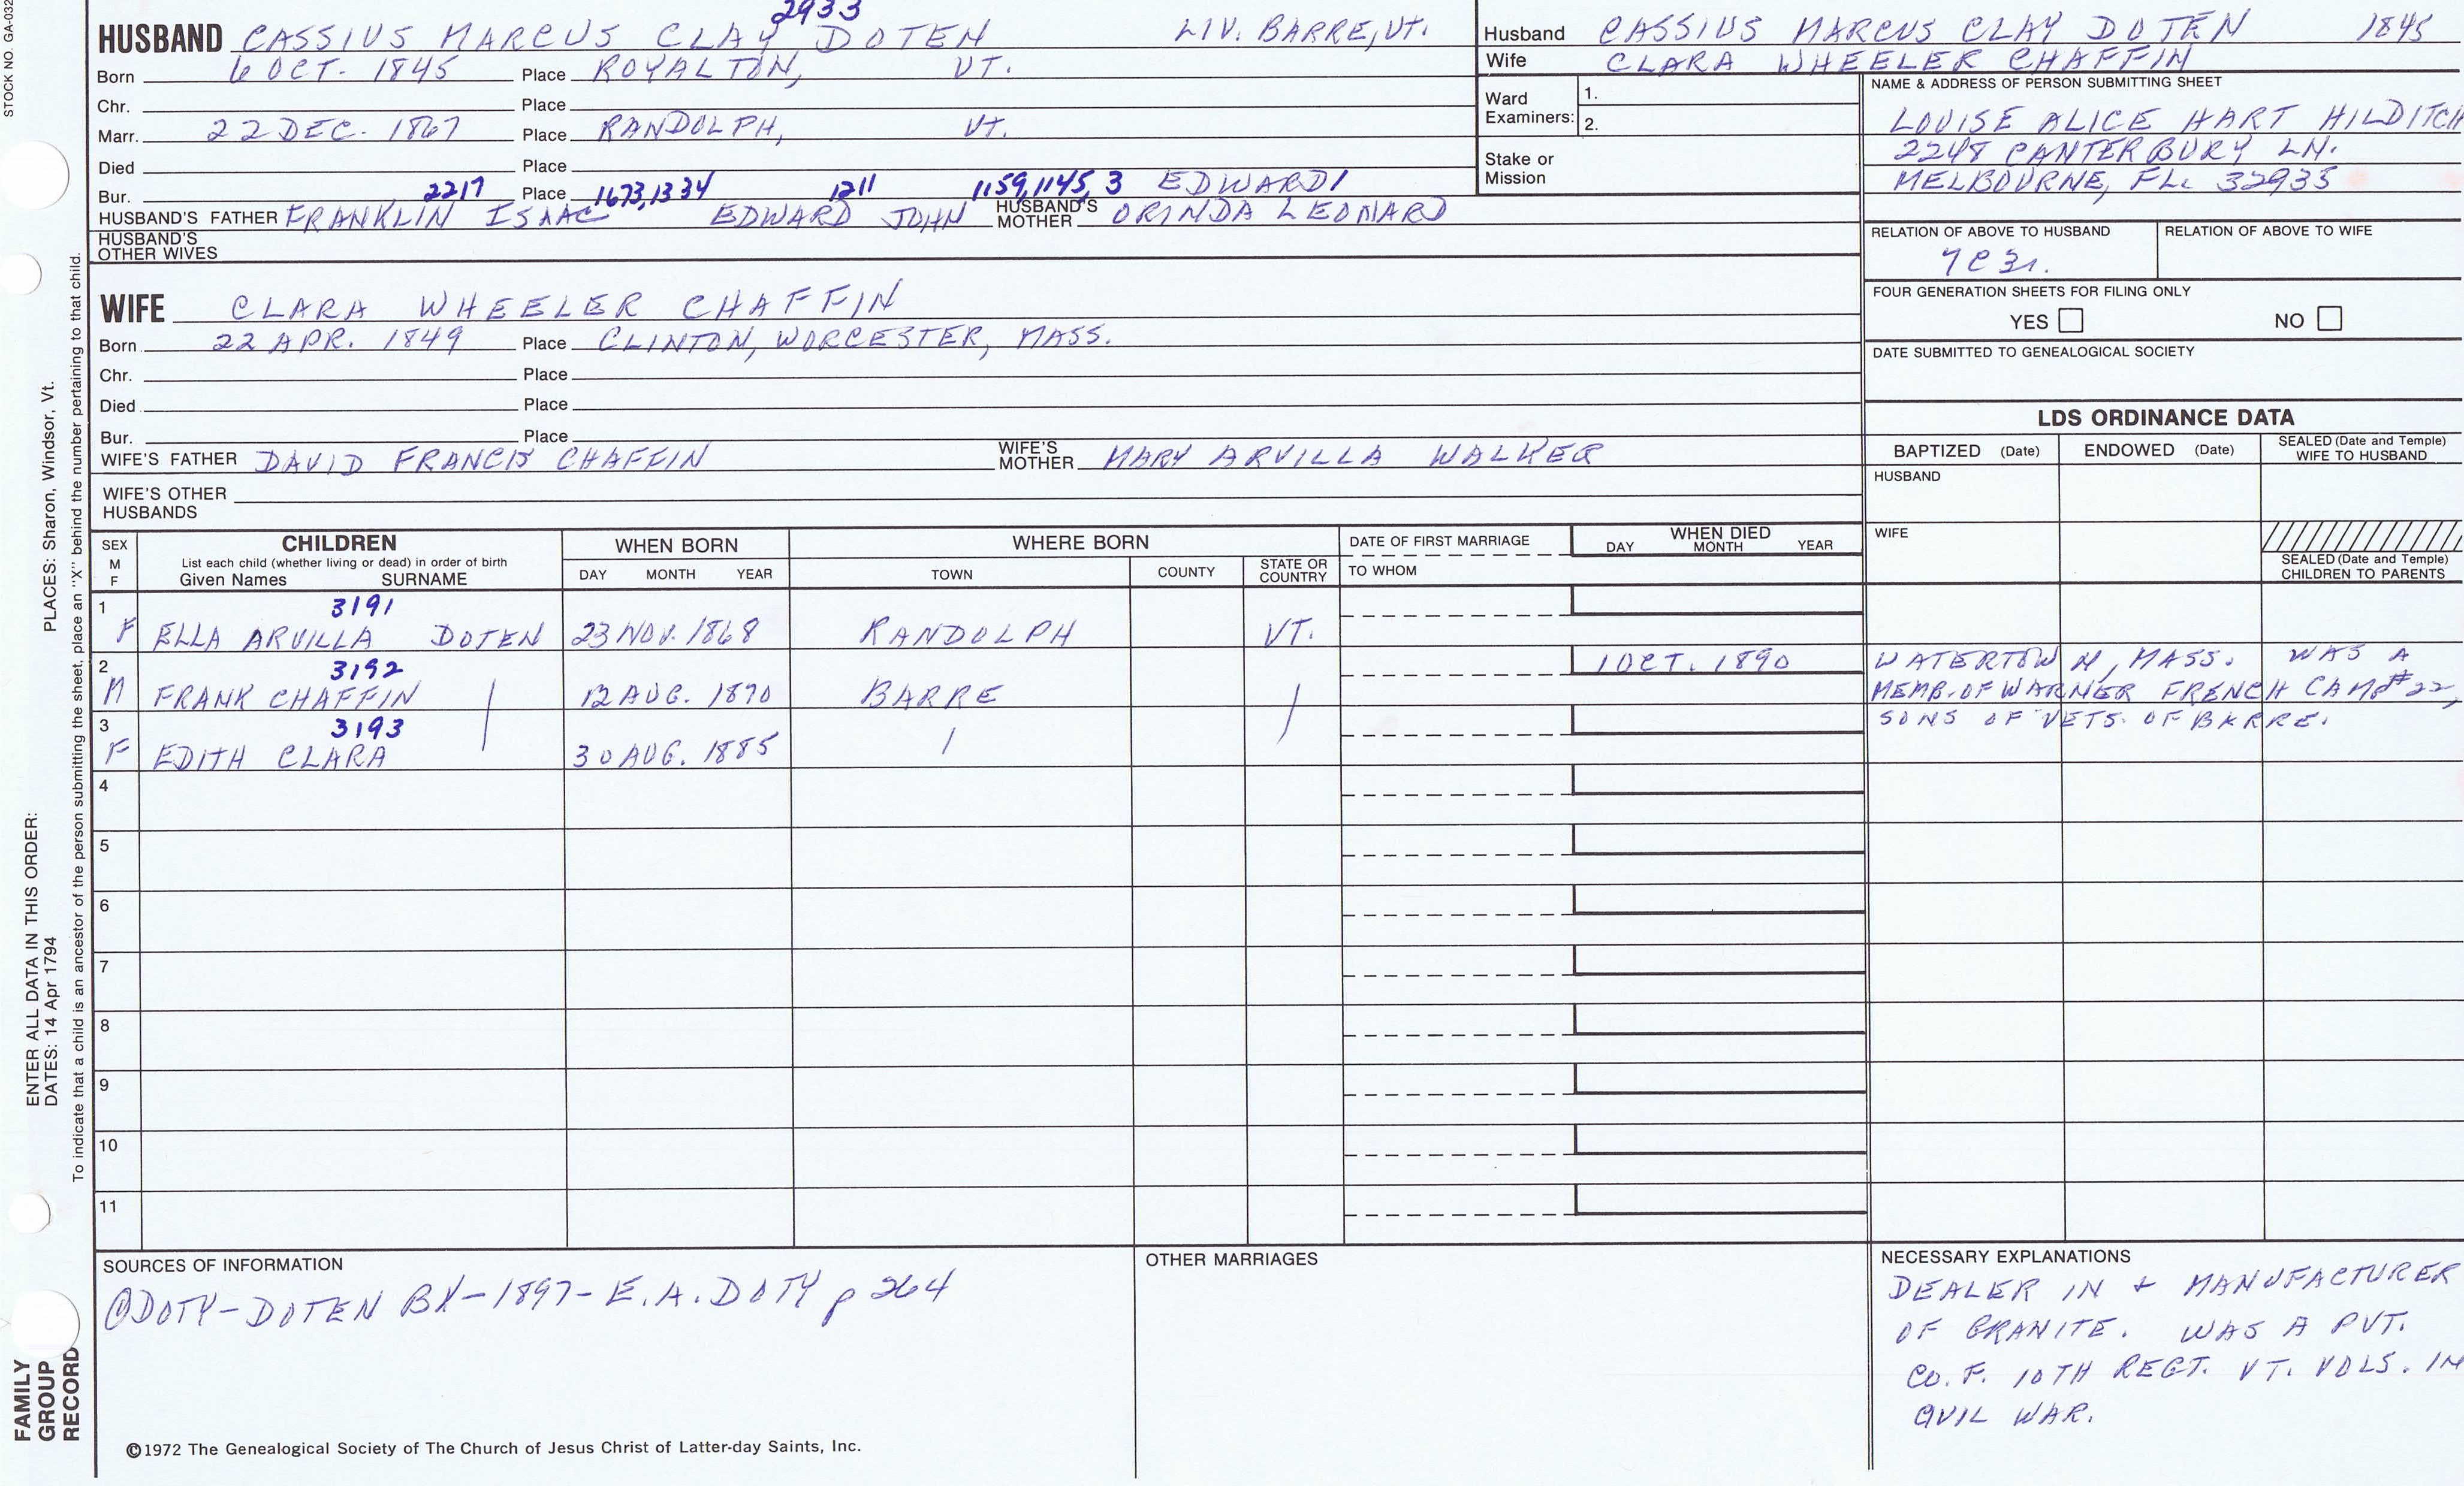 STOCK NO. GA-032
2933
HUSBAND CASSIUS MARCUS CLAY DOTEN LIV. BARRE, VT.
Born 6 OCT. 1845 Place ROYALTON, VT.
Chr. Place
Marr. 22 DEC. 1867 Place RANDOLPH, VT.
Died Place
Bur. 2217 Place 1673,1334 1211 1159,1145, 3 EDWARD1
HUSBAND'S FATHER FRANKLIN ISAAC EDWARD JOHN HUSBAND'S MOTHER ORINDA LEONARD
HUSBAND'S
OTHER WIVES
WIFE CLARA WHEELER CHAFFIN
Born 22 APR. 1849 Place CLINTON, WORCESTER, MASS.
Chr. Place
Died Place
Bur. Place
WIFE'S FATHER DAVID FRANCIS CHAFFIN WIFE'S MOTHER MARY ARVILLA WALKER
WIFE'S OTHER
HUSBANDS
Husband CASSIUS MARCUS CLAY DOTEN 1845
Wife CLARA WHEELER CHAFFIN
Ward
Examiners:
1.
2.
Stake or
Mission
NAME & ADDRESS OF PERSON SUBMITTING SHEET
LOUISE ALICE HART HILDITCH
2248 CANTERBURY LN.
MELBOURNE, FL. 32935
RELATION OF ABOVE TO HUSBAND RELATION OF ABOVE TO WIFE
7C3r.
FOUR GENERATION SHEETS FOR FILING ONLY
YES NO
DATE SUBMITTED TO GENEALOGICAL SOCIETY
LDS ORDINANCE DATA
BAPTIZED (Date) ENDOWED (Date) SEALED (Date and Temple)
WIFE TO HUSBAND
HUSBAND
WIFE
SEALED (Date and Temple)
CHILDREN TO PARENTS
SEX
M
F
CHILDREN
List each child (whether living or dead) in order of birth
Given Names SURNAME
WHEN BORN
DAY MONTH YEAR
WHERE BORN
TOWN COUNTY STATE OR
COUNTRY
DATE OF FIRST MARRIAGE
TO WHOM
WHEN DIED
DAY MONTH YEAR
1 3191
F ELLA ARVILLA DOTEN 23 NOV. 1868 RANDOLPH VT.
2 3192 1 OCT. 1890 WATERTOWN, MASS. WAS A
M FRANK CHAFFIN 12 AUG. 1870 BARRE MEMB. OF WARNER FRENCH CAMP #22,
3 3193 SONS OF VETS. OF BARRE.
F EDITH CLARA 30 AUG. 1885
4
5
6
7
8
9
10
11
SOURCES OF INFORMATION
① DOTY-DOTEN BK-1897- E.A. DOTY p 264
OTHER MARRIAGES
NECESSARY EXPLANATIONS
DEALER IN + MANUFACTURER
OF GRANITE. WAS A PVT.
CO. F. 10TH REGT. VT. VOLS. IN
CIVIL WAR.
©1972 The Genealogical Society of The Church of Jesus Christ of Latter-day Saints, Inc.
FAMILY
GROUP
RECORD
ENTER ALL DATA IN THIS ORDER:
DATES: 14 Apr 1794
PLACES: Sharon, Windsor, Vt.
To indicate that a child is an ancestor of the person submitting the sheet, place an "X" behind the number pertaining to that child.